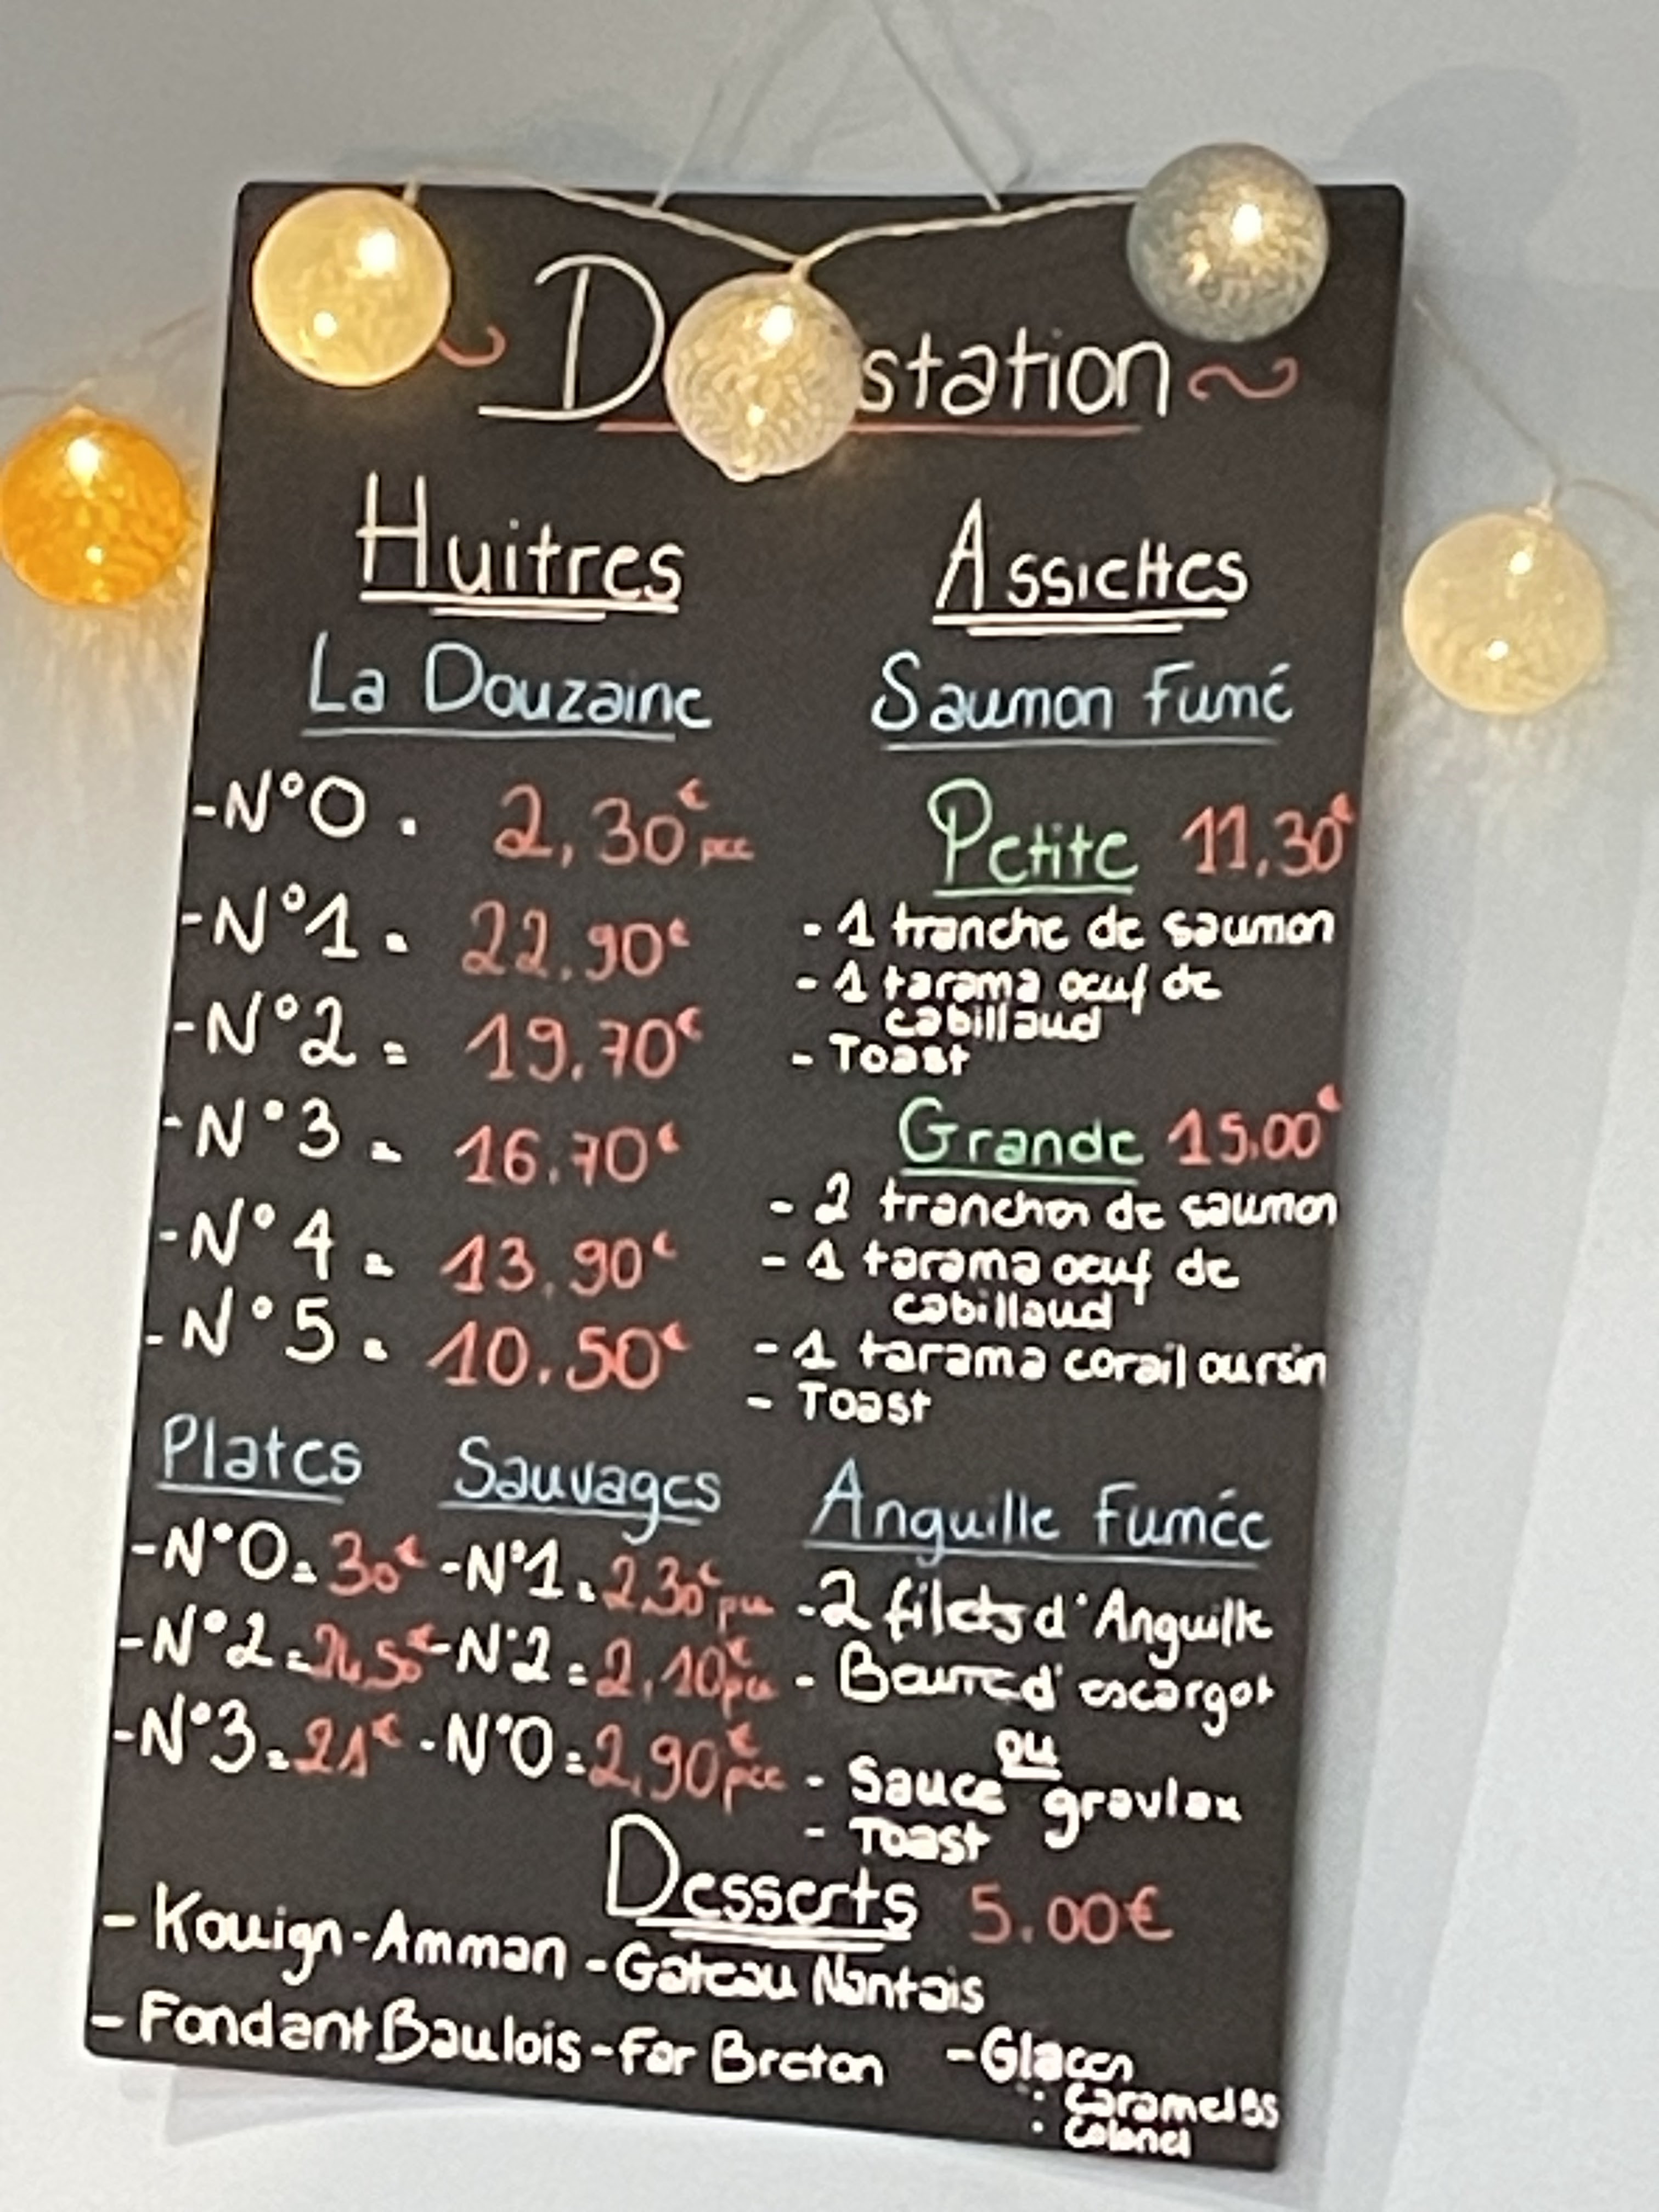 ~ D station ~
Huitres
La Douzaine
-N°0 . 2,30€ pce
-N°1 = 22.90€
-N°2 = 19.70€
-N°3 = 16.70€
-N°4 = 13.90€
-N°5 = 10.50€
Plates
-N°0= 30€
-N°2=
-N°3=21€
Sauvages
-N°1=2.30€ pce
-N°2=2,10€ pce
-N°0=2,90€ pce
Assiettes
Saumon Fumé
Petite 11.30€
- 1 tranche de saumon
- 1 tarama oeuf de
cabillaud
- Toast
Grande 15.00€
- 2 tranches de saumon
- 1 tarama oeuf de
cabillaud
- 1 tarama corail oursin
- Toast
Anguille Fumée
-2 filets d'Anguille
- Beurre d'escargot
ou
- Sauce gravlax
- Toast
Desserts 5.00€
- Kouign-Amman -Gateau Nantais
- Fondant Baulois -Far Breton -Glaces
: Caramel BS
: Colonel